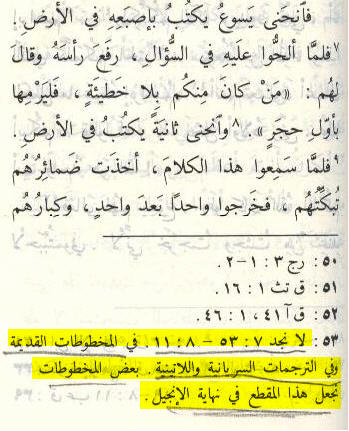 فاَنحَنى يسوعُ يكتُبُ بإصبَعِهِ في الأرضِ.
٧فلمَّا ألحُّوا علَيهِ في السُّؤالِ ، رفَعَ رأسَهُ وقالَ
لهُم : «مَنْ كانَ مِنكُم بِلا خَطيئةٍ ، فَليَرْمِها
بأوّلِ حجَرٍ» . ٨واَنحنى ثانيَةً يكتُبُ في الأرضِ.
٩فلمَّا سَمِعوا هذا الكلامَ ، أخذَت ضَمائِرُهُم
تُبَكِّتُهُم ، فخَرجوا واحدًا بَعدَ واحدٍ ، وكِبارُهُم
٥٠ : رج ٣ : ١ – ٢ .
٥١ : ق تث ١ : ١٦ .
٥٢ : ق آ ٤١ ، ١ : ٤٦ .
٥٣ : لا نجد ٧ : ٥٣ – ٨ : ١١ في المخطوطات القديمة
وفي الترجمات السريانية واللاتينية . بعض المخطوطات
تجعل هذا المقطع في نهاية الإنجيل .